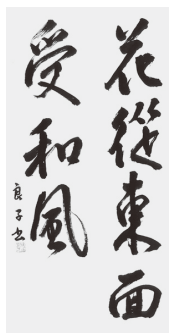 花從東面
受和風
良子书